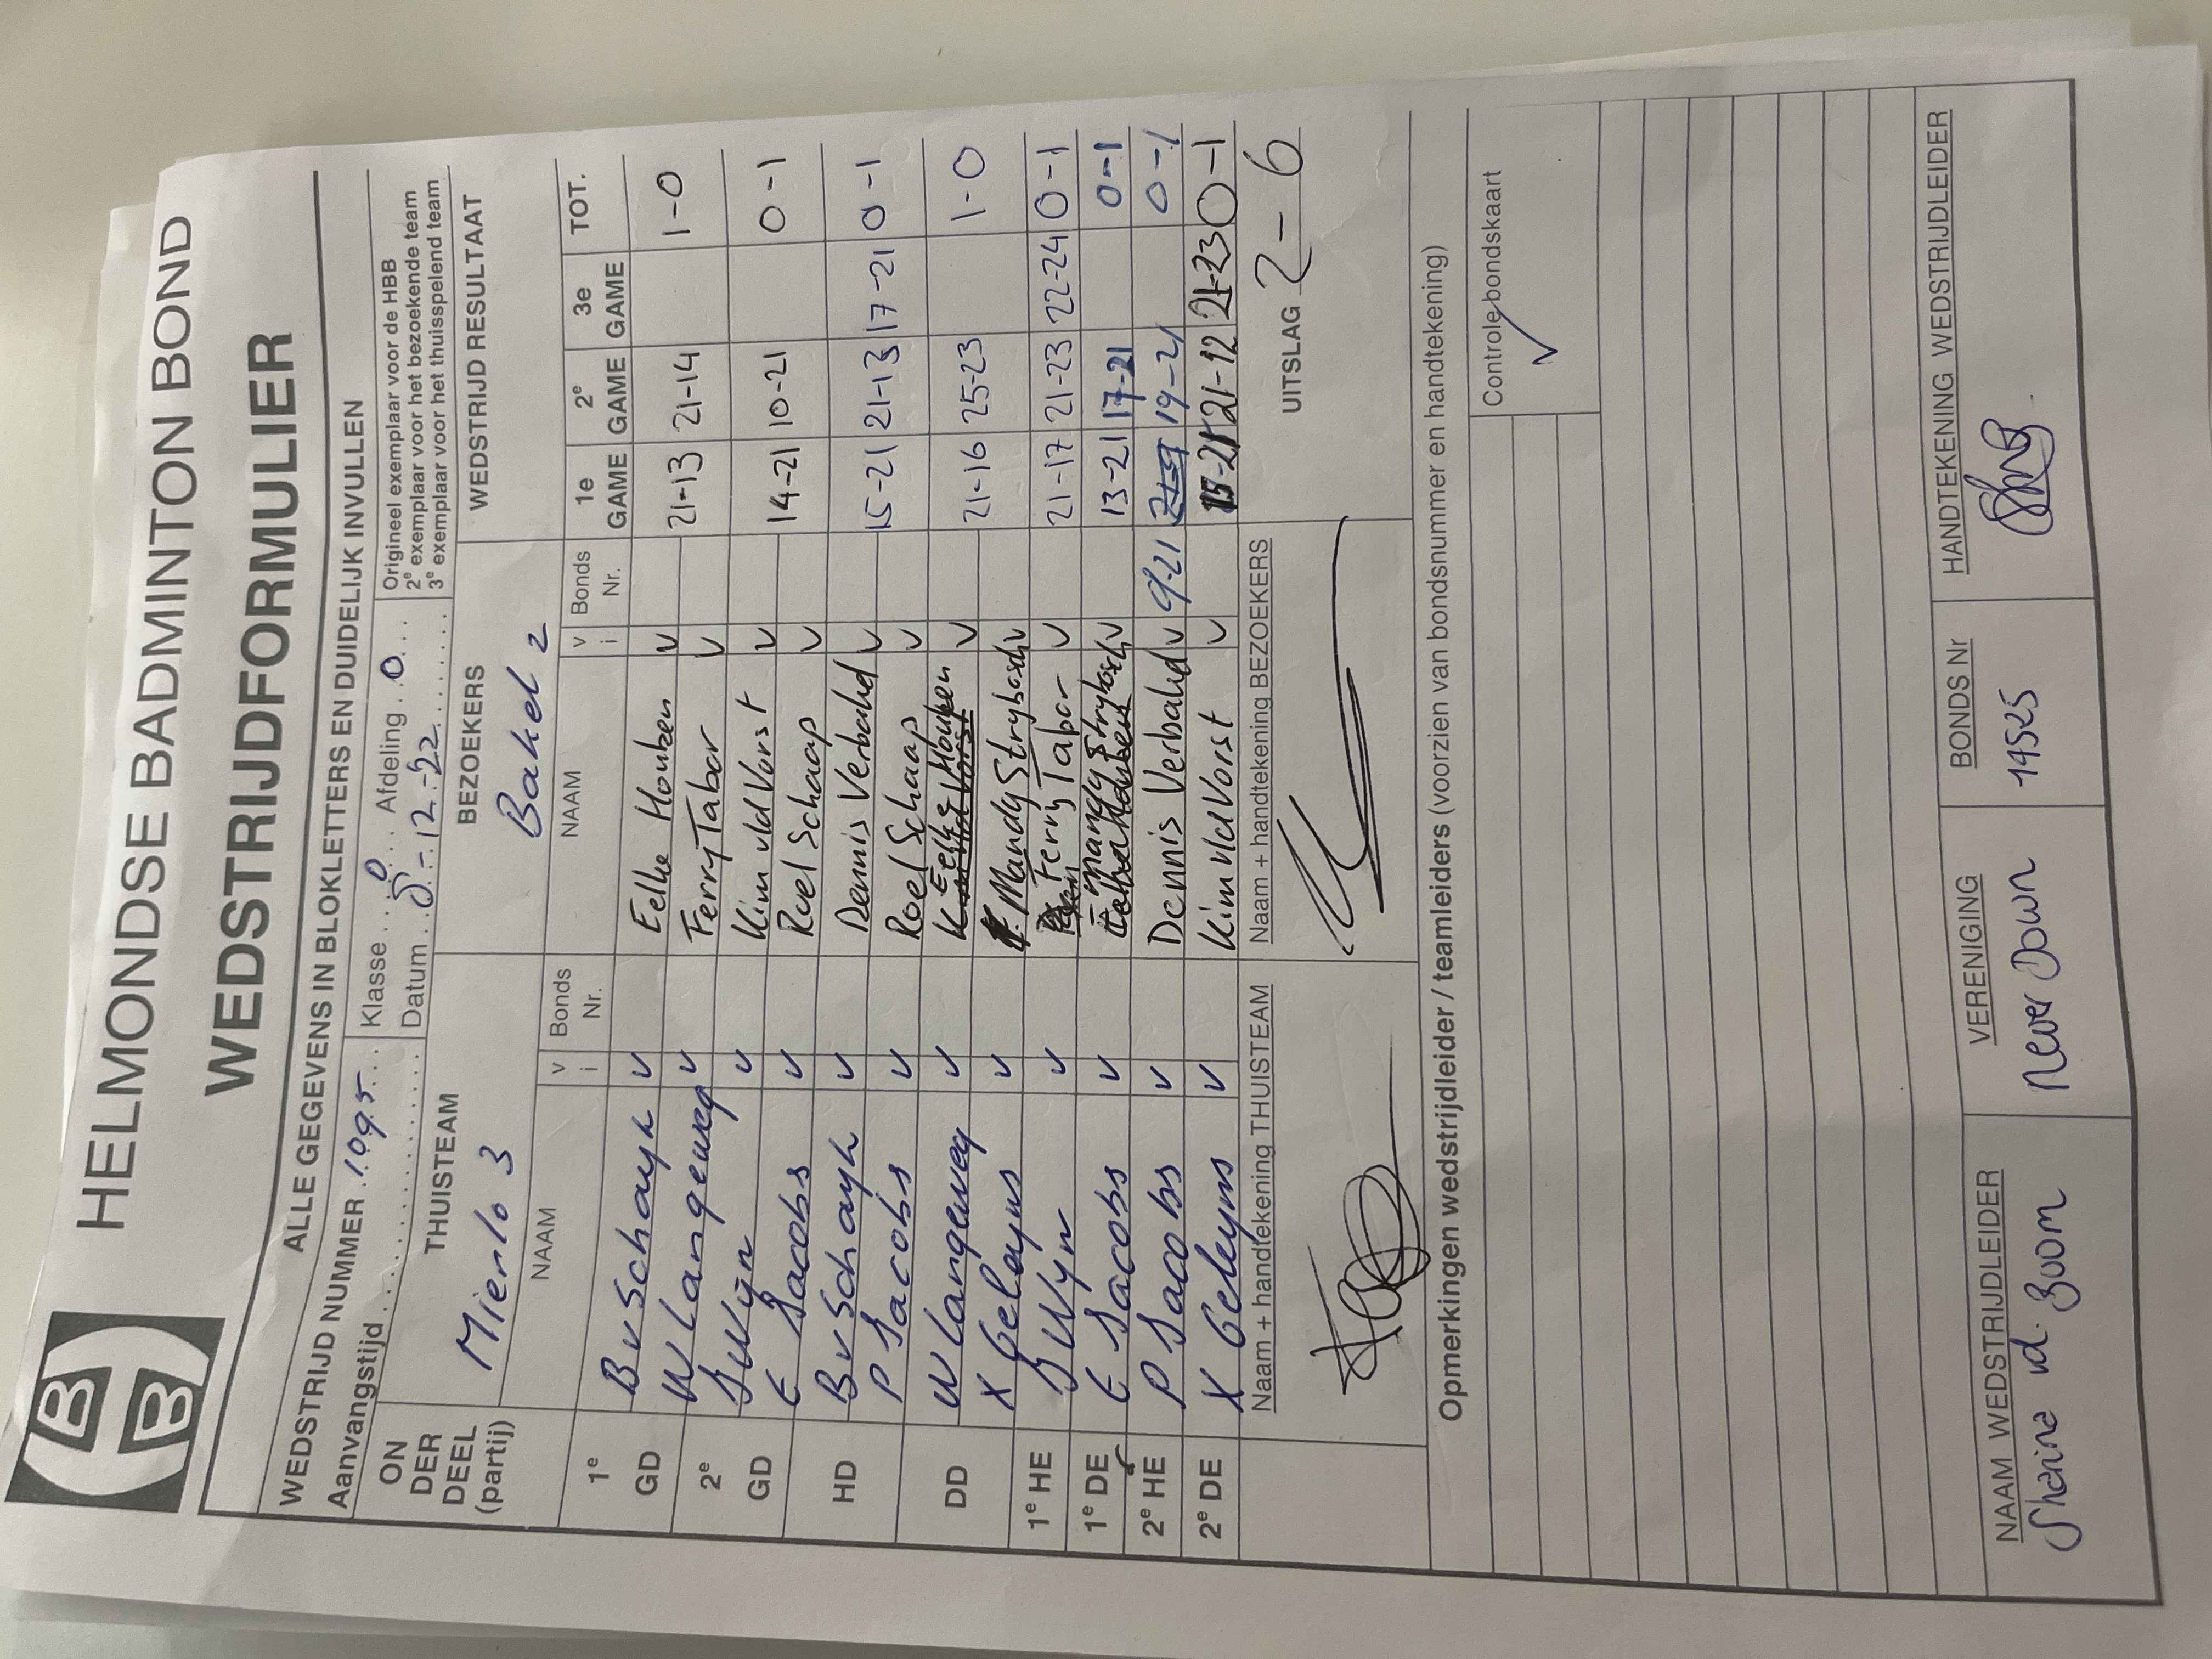 HBB
HELMONDSE BADMINTON BOND
WEDSTRIJDFORMULIER
ALLE GEGEVENS IN BLOKLETTERS EN DUIDELIJK INVULLEN
WEDSTRIJD NUMMER 1095 Klasse O Afdeling O
Aanvangstijd Datum 5-12-22
Origineel exemplaar voor de HBB
2e exemplaar voor het bezoekende team
3e exemplaar voor het thuisspelend team
ON DER DEEL (partij) THUISTEAM BEZOEKERS WEDSTRIJD RESULTAAT
Mierlo 3 Bakel 2
NAAM v i Bonds Nr. NAAM v i Bonds Nr. 1e GAME 2e GAME 3e GAME TOT.
1e GD B v Schayk v Eelke Houben v 21-13 21-14 1-0
W Langeweg v Ferry Tabor v
2e GD J Wijn v Kim vld Vorst v 14-21 10-21 0-1
E Jacobs v Roel Schaap v
HD B v Schayk v Dennis Verbakel v 15-21 21-13 17-21 0-1
P Jacobs v Roel Schaap v
DD W Langeweg v Eelke Houben v 21-16 25-23 1-0
X Geleyns v Mandy Strybosch v
1e HE J Wyn v Ferry Tabor v 21-17 21-23 22-24 0-1
1e DE E Jacobs v Mandy Strybosch v 13-21 17-21 0-1
2e HE P Jacobs v Dennis Verbakel v 9-21 19-21 0-1
2e DE X Geleyns v Kim vld Vorst v 15-21 21-12 21-23 0-1
Naam + handtekening THUISTEAM Naam + handtekening BEZOEKERS UITSLAG 2-6
Opmerkingen wedstrijdleider / teamleiders (voorzien van bondsnummer en handtekening)
Controle bondskaart
NAAM WEDSTRIJDLEIDER VERENIGING BONDS Nr HANDTEKENING WEDSTRIJDLEIDER
vd. Boom Never Down 19525